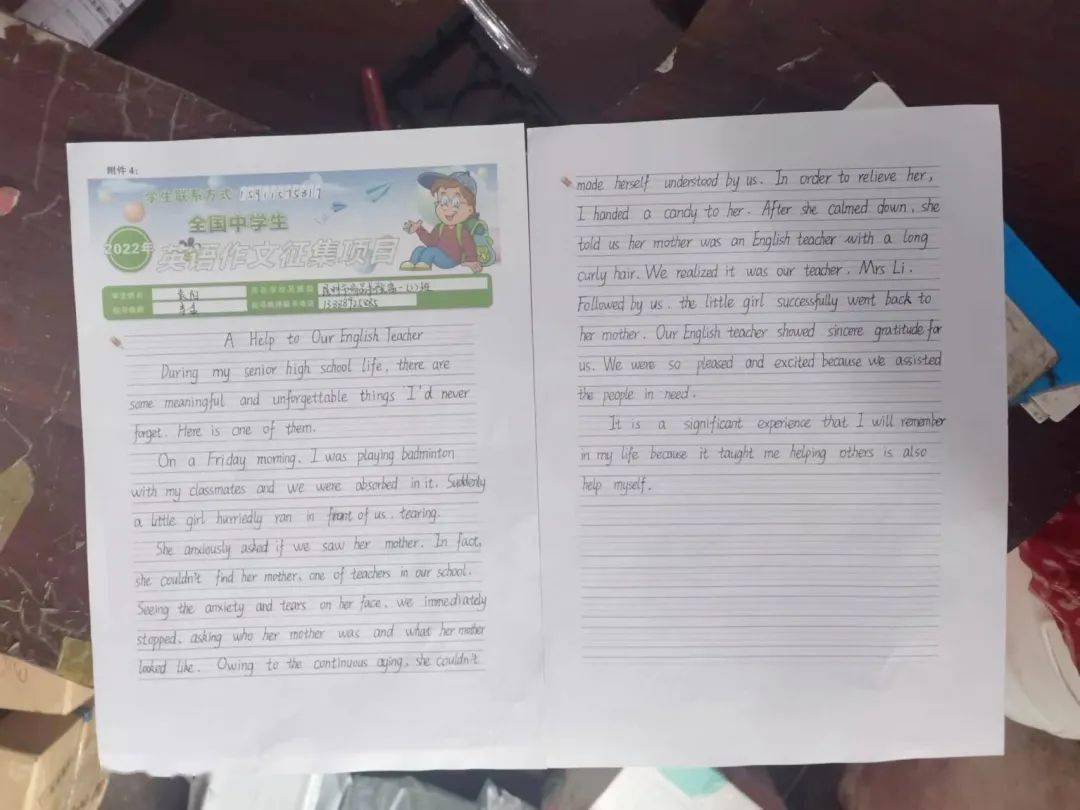 附件4:
学生联系方式 15911575817
全国中学生
2022年
英语作文征集项目
学生姓名
指导教师
指导教师联系电话
A Help to Our English Teacher
During my senior high school life, there are
some meaningful and unforgettable things I'd never
forget. Here is one of them.
On a Friday morning, I was playing badminton
with my classmates and we were absorbed in it. Suddenly
a little girl hurriedly ran in front of us, tearing.
She anxiously asked if we saw her mother. In fact,
she couldn't find her mother, one of teachers in our school.
Seeing the anxiety and tears on her face, we immediately
stopped, asking who her mother was and what her mother
looked like. Owing to the continuous crying, she couldn't
made herself understood by us. In order to relieve her,
I handed a candy to her. After she calmed down, she
told us her mother was an English teacher with a long
curly hair. We realized it was our teacher, Mrs Li.
Followed by us, the little girl successfully went back to
her mother. Our English teacher showed sincere gratitude for
us. We were so pleased and excited because we assisted
the people in need.
It is a significant experience that I will remember
in my life because it taught me helping others is also
help myself.